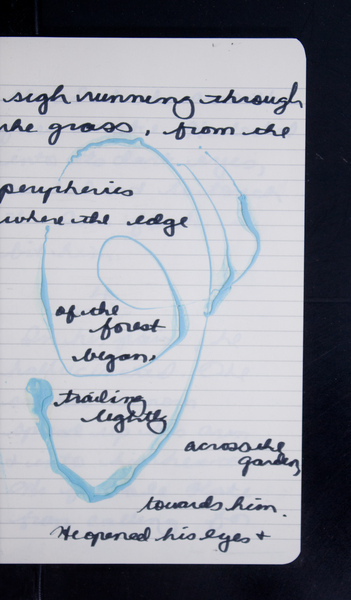 sigh running through
the grass, from the
peripheries
where the edge
of the
forest
began,
trailing
lightly
across the
garden,
towards him.
He opened his eyes +